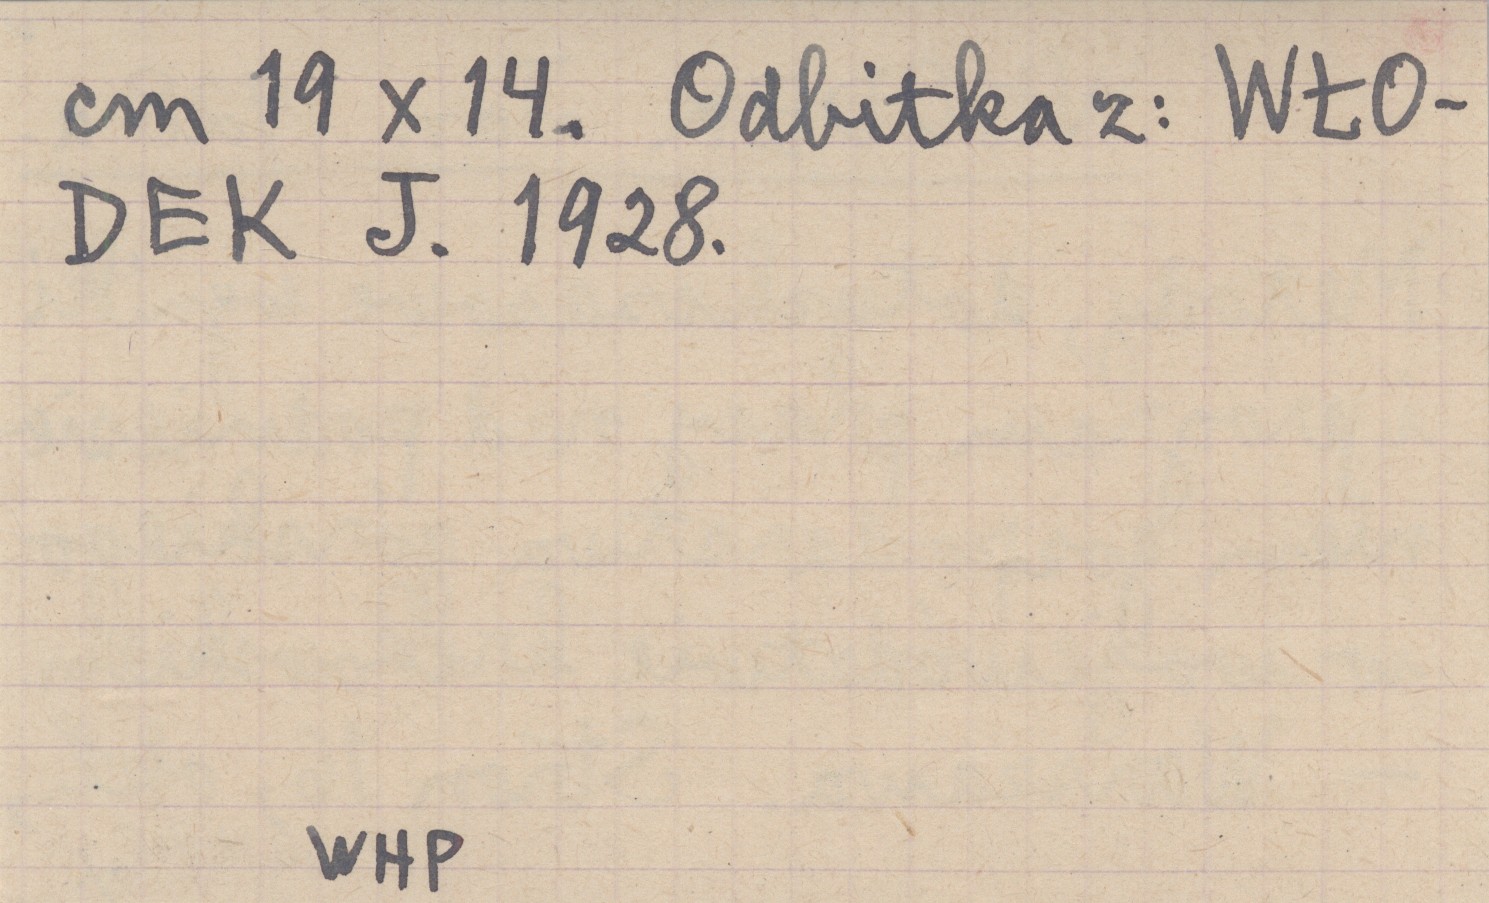 cm 19 x 14. Odbitka z: WŁO-
DEK J. 1928.
WHP